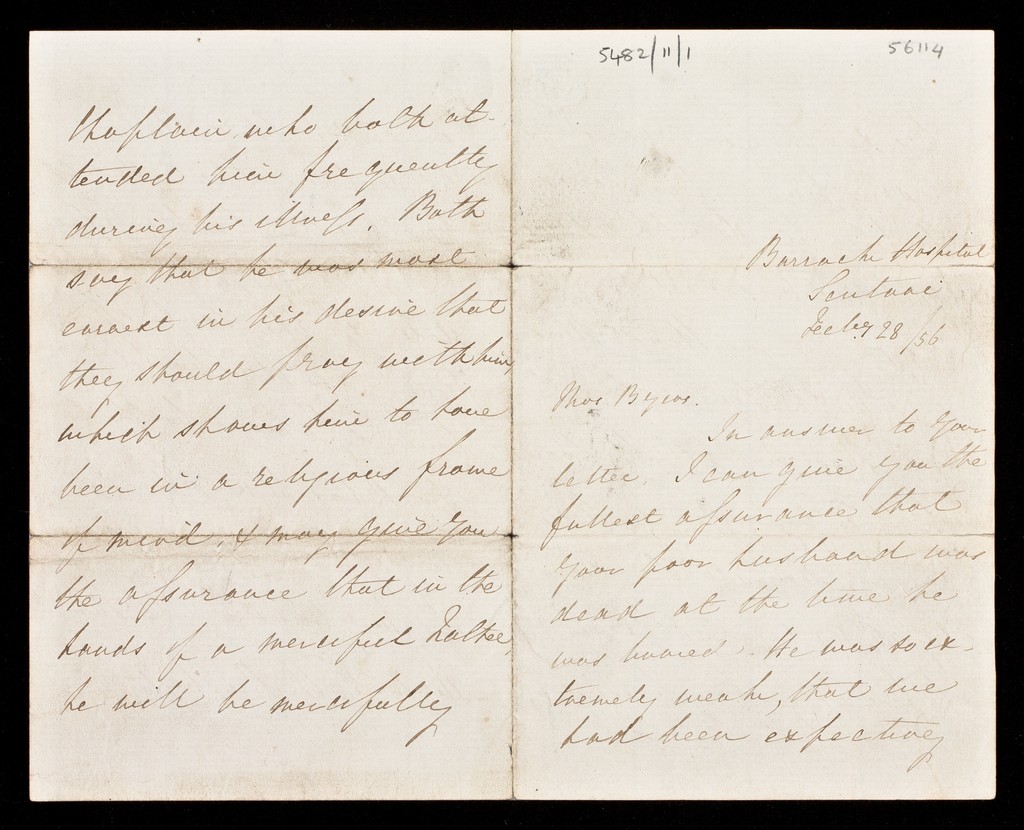 5482/11/1
56114
Barrack Hospital
Scutari
Feby 28/56
Mrs Byrns.
In answer to your
letter. I can give you the
fullest assurance that
your poor husband was
dead at the time he
was buried. He was so ex-
tremely weak, that we
had been expecting
Chaplain who both at-
tended him frequently
during his illness. Both
say that he was most
earnest in his desire that
they should pray with him
which shows him to have
been in a religious frame
of mind, & may give you
the assurance that in the
hands of a merciful Father,
he will be mercifully